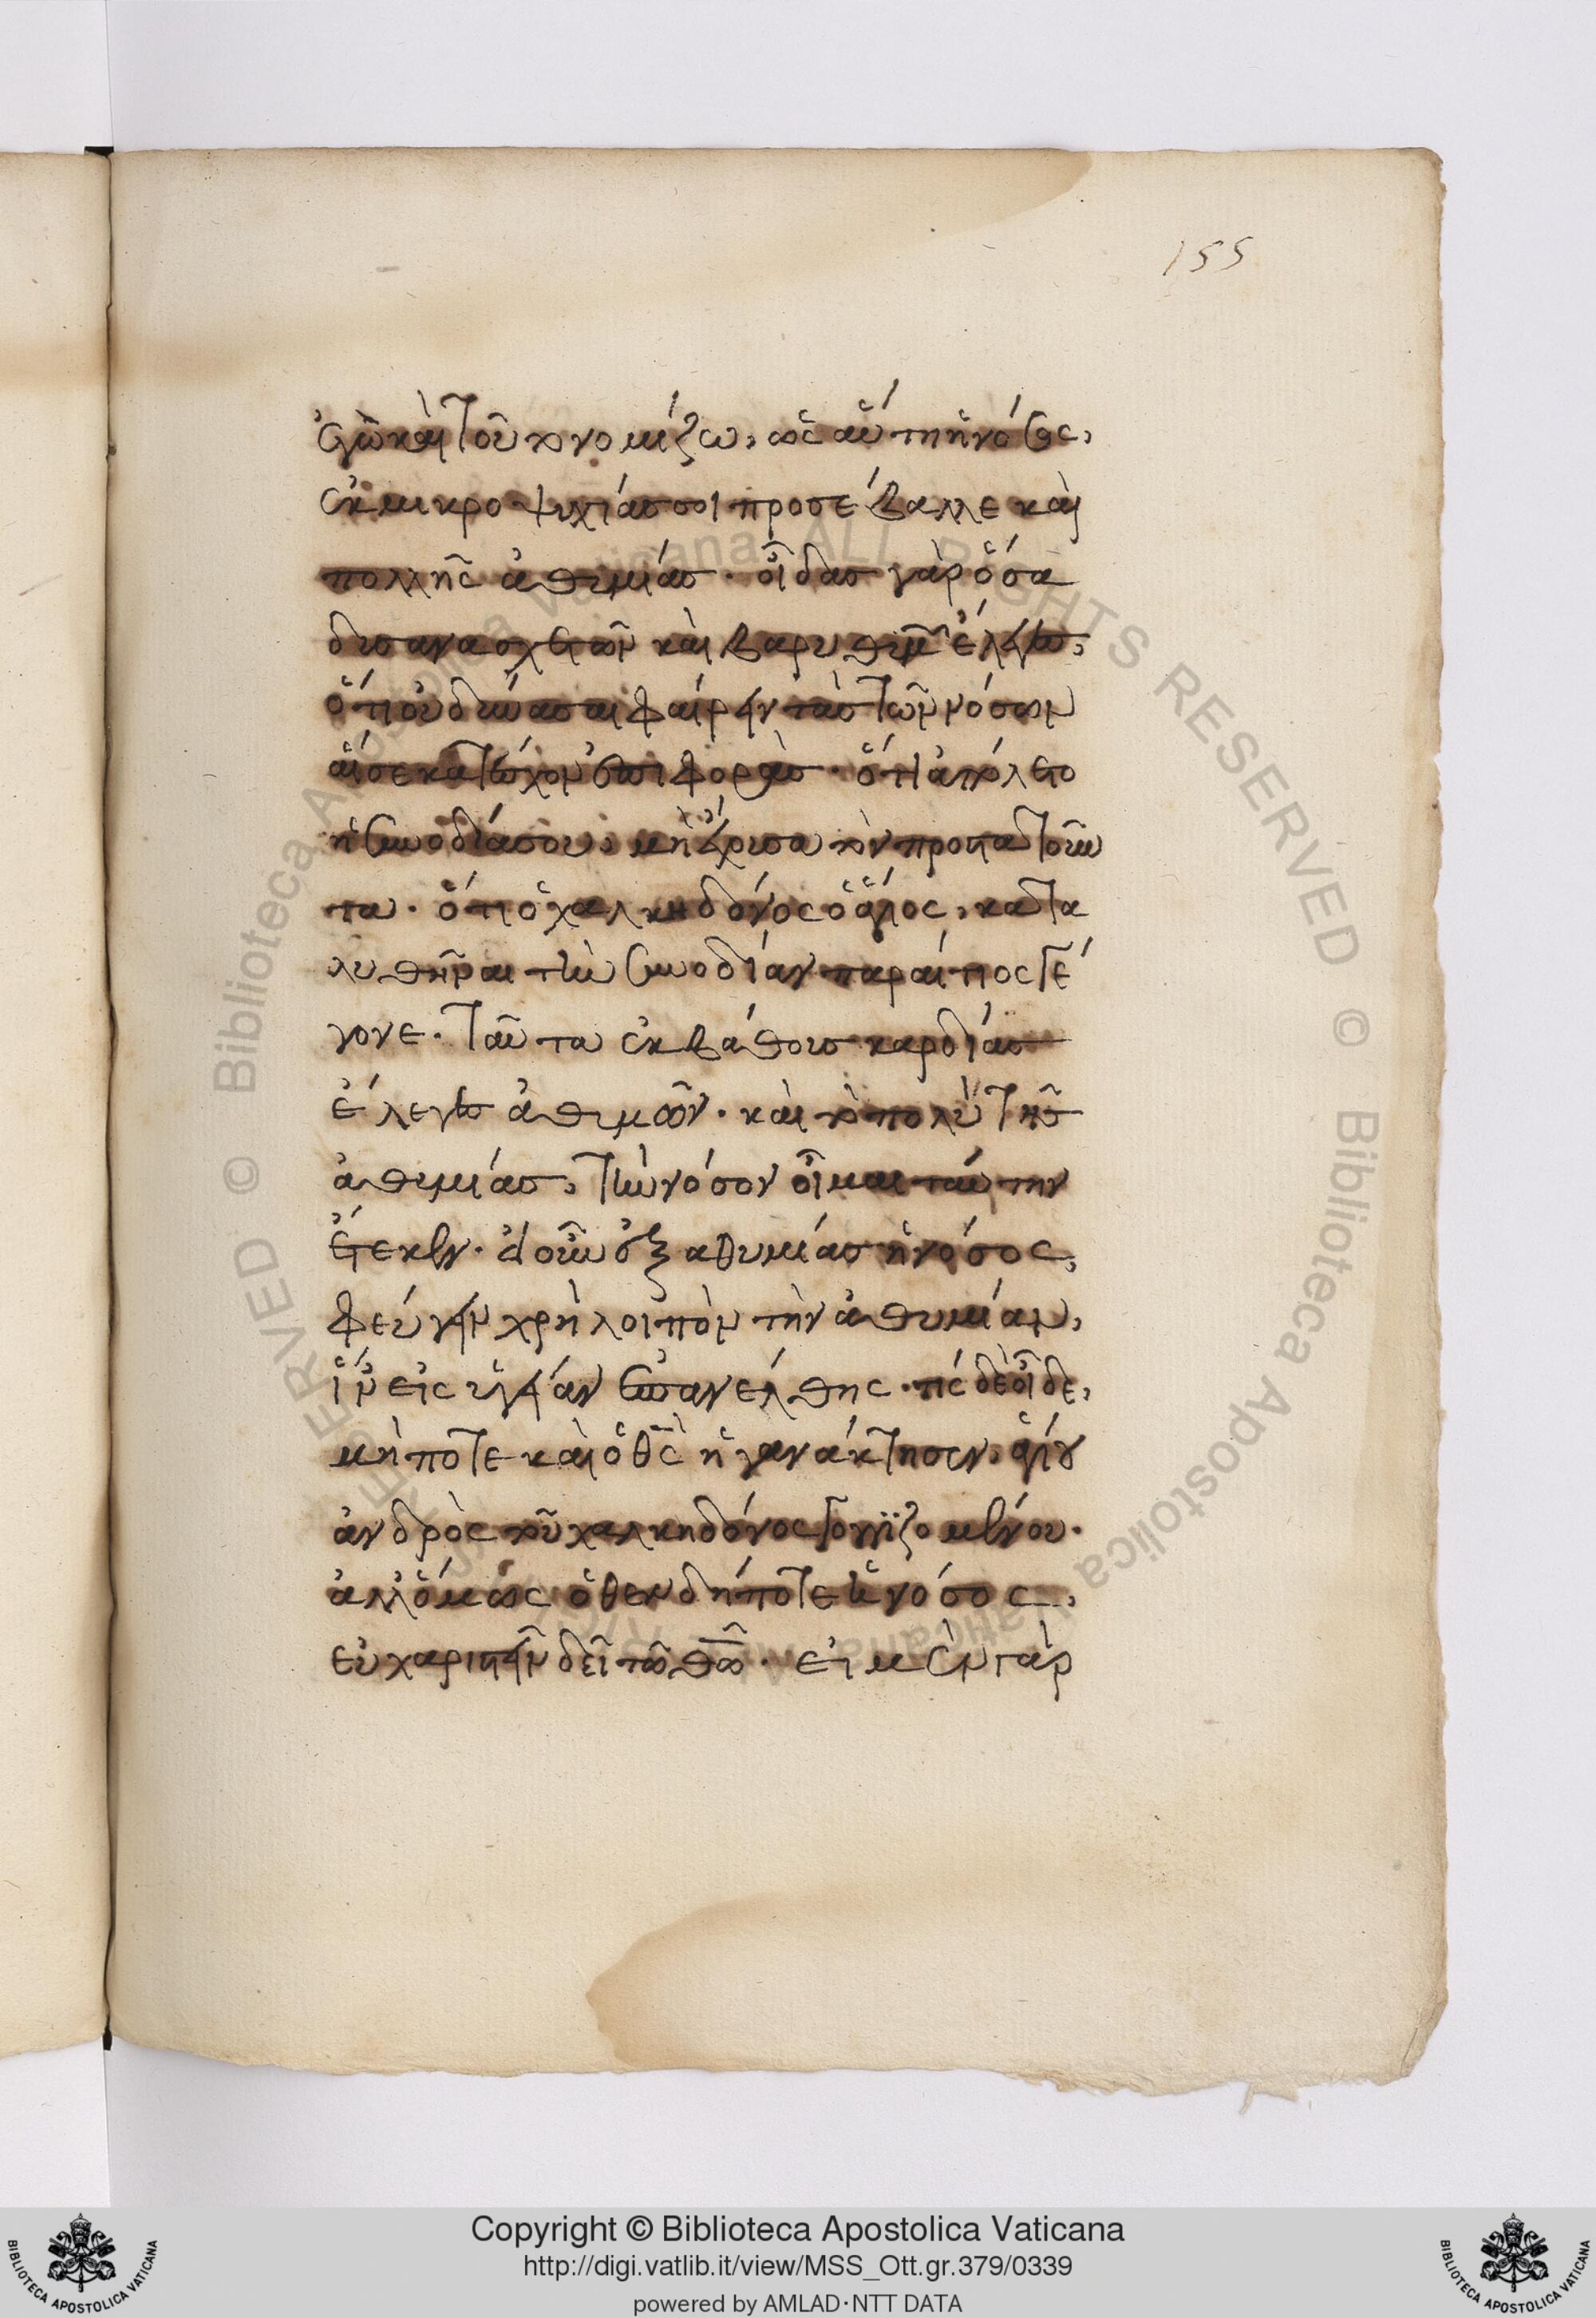 155
ἐγὼ καὶ τοῦτο νομίζω, ὡς αὕτη ἡ νόσος,
ἐκ μικροψυχίας σοι προσέβαλλε καὶ
πολλῆς ἀθυμίας. οἶδας γὰρ ὅσα
δυσανασχετῶν καὶ βαρυθυμῶν ἔλεγες,
ὅτι οὐ δύνασαι φαίρειν τὰς τῶν νόσων
αἵ σε κατέχουσι φοράς. ὅτι ἀπόλετο
ἡ συνοδία σου, μὴ ἔχουσα τὸν προστατοῦν
τα. ὅτι ὁ χαλκηδόνος ὁ ἅγιος, κατα
λυθῆναι τὴν συνοδίαν παραίτιος γέ
γονε. ταῦτα ἐκ βάθους καρδίας
ἔλεγες ἀθυμῶν. καὶ τὸ πολὺ τῆς
ἀθυμίας, τὴν νόσον οἶμαι ταύτην
ἔτεκεν. εἰ οὖν ἐξ αθυμίας ἡ νόσος,
φεύγειν χρὴ λοιπὸν τὴν ἀθυμίαν,
ἵν' εἰς ὑγείαν ἐπανέλθης. τίς δὲ οἶδε,
μήποτε καὶ ὁ θς ἠγανάκτησεν, ἁγίου
ἀνδρὸς τοῦ χαλκηδόνος γογγϊζομένου.
ἀλλ' ὅμως ὅθεν δήποτε ἡ νόσος,
εὐχαριστεῖν δεῖ τῶ θῶ. εἰ μὲν γὰρ
Copyright © Biblioteca Apostolica Vaticana
http://digi.vatlib.it/view/MSS_Ott.gr.379/0339
powered by AMLAD·NTT DATA